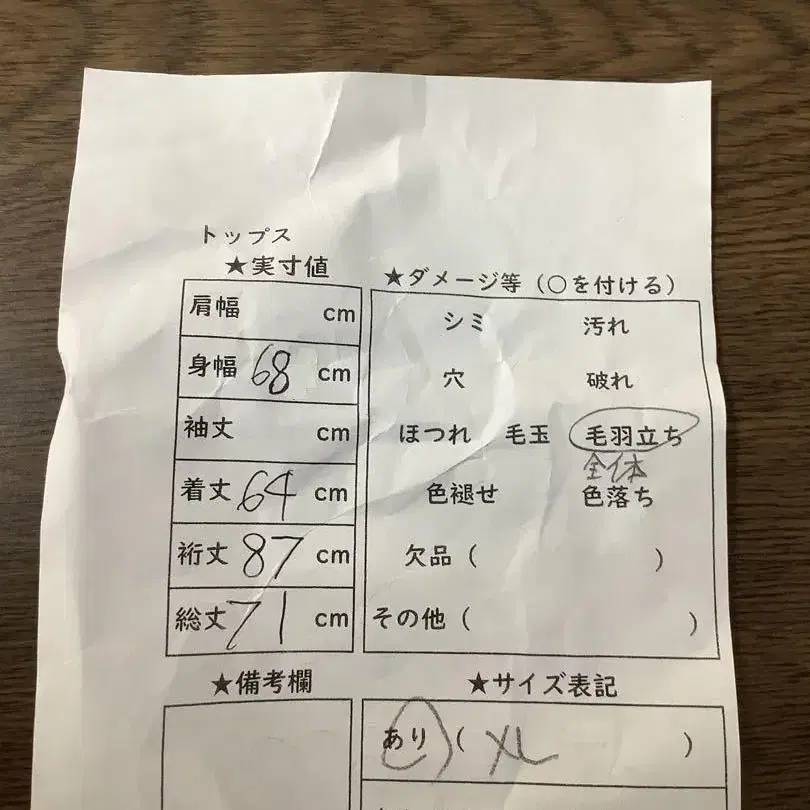 トップス
★実寸値
肩幅 cm
身幅 68 cm
袖丈 cm
着丈 64 cm
裄丈 87 cm
総丈 71 cm
★ダメージ等（○を付ける）
シミ 汚れ
穴 破れ
ほつれ 毛玉 毛羽立ち
全体
色褪せ 色落ち
欠品（ ）
その他（ ）
★備考欄
★サイズ表記
あり（ XL ）